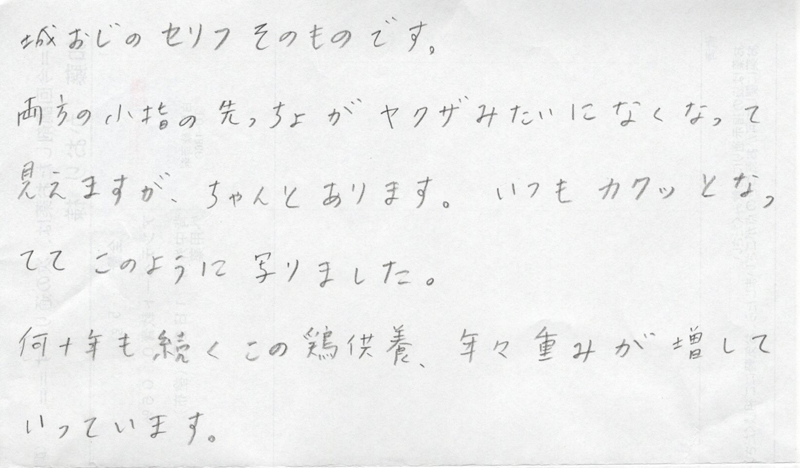 城おじのセリフそのものです。
両方の小指の先っちょがヤクザみたいになくなって
見えますが、ちゃんとあります。いつもカクッとなっ
ててこのように写りました。
何十年も続くこの鶏供養、年々重みが増して
いっています。